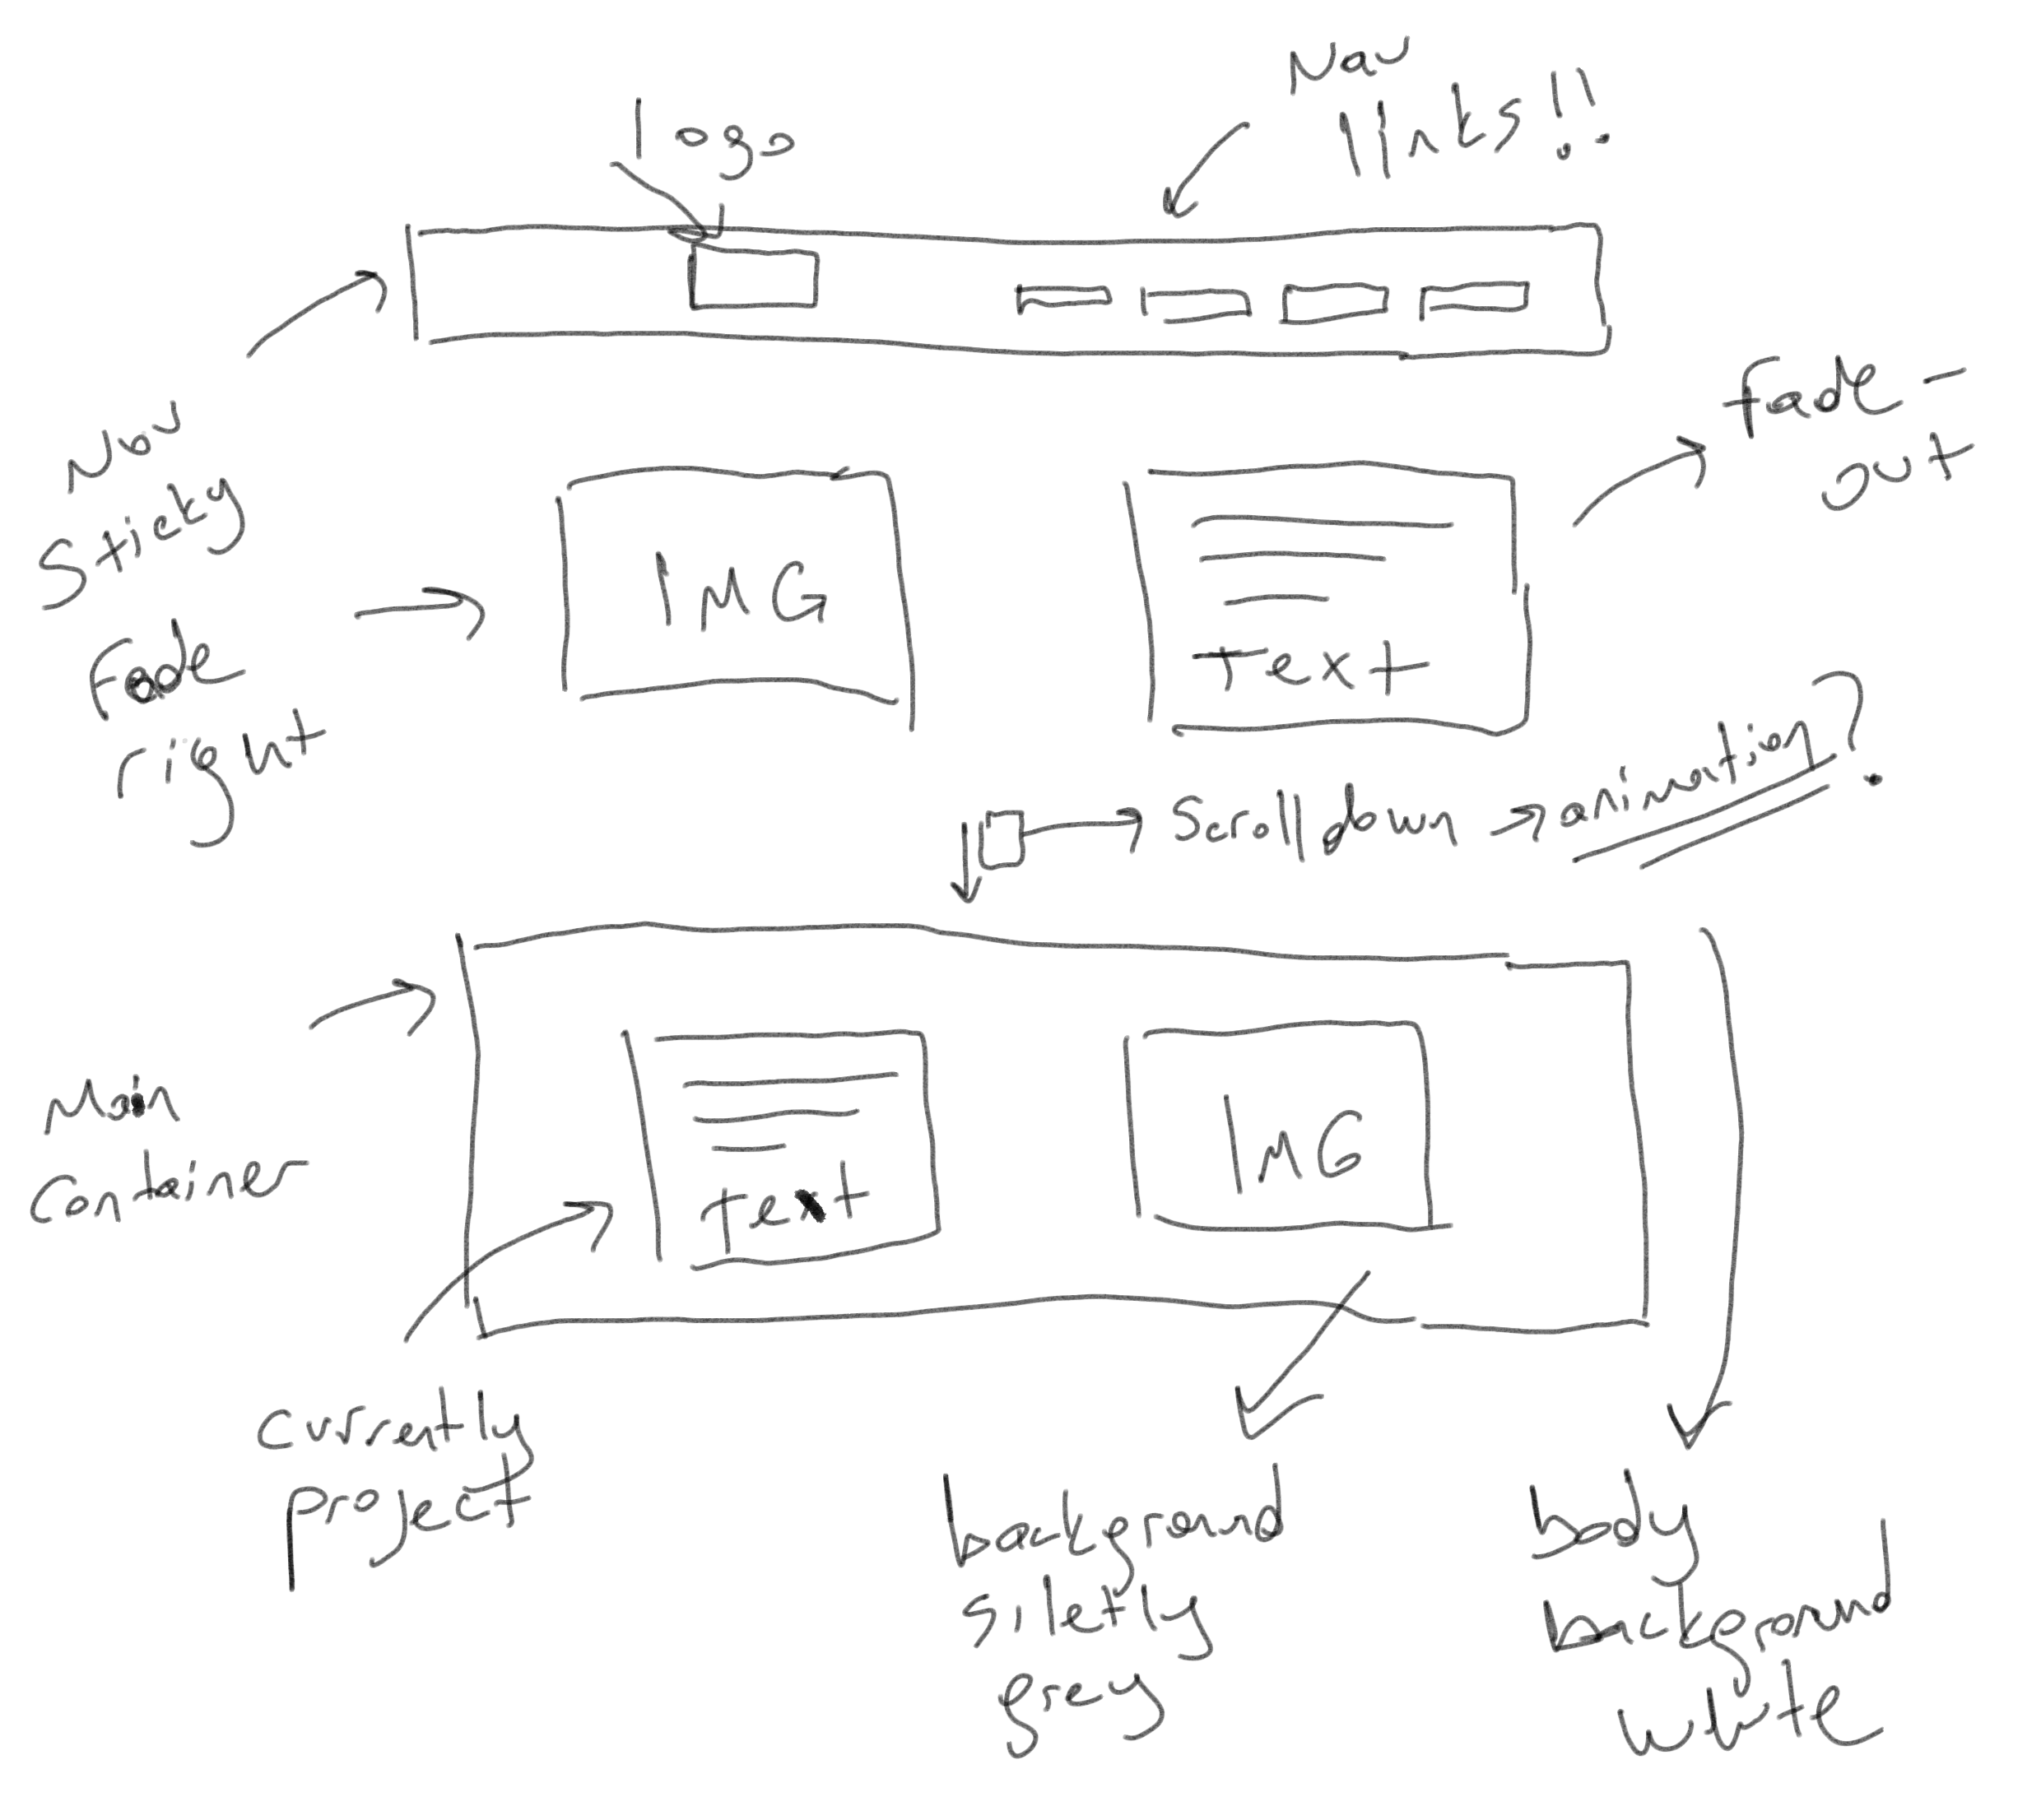 Nav
links!!
logo
Nav
Sticky
Fade-
out
IMG
Text
Fade
right
Scroll down → animation?
Main
Container
Text
IMG
Currently
project
background
siletly
grey
body
background
white